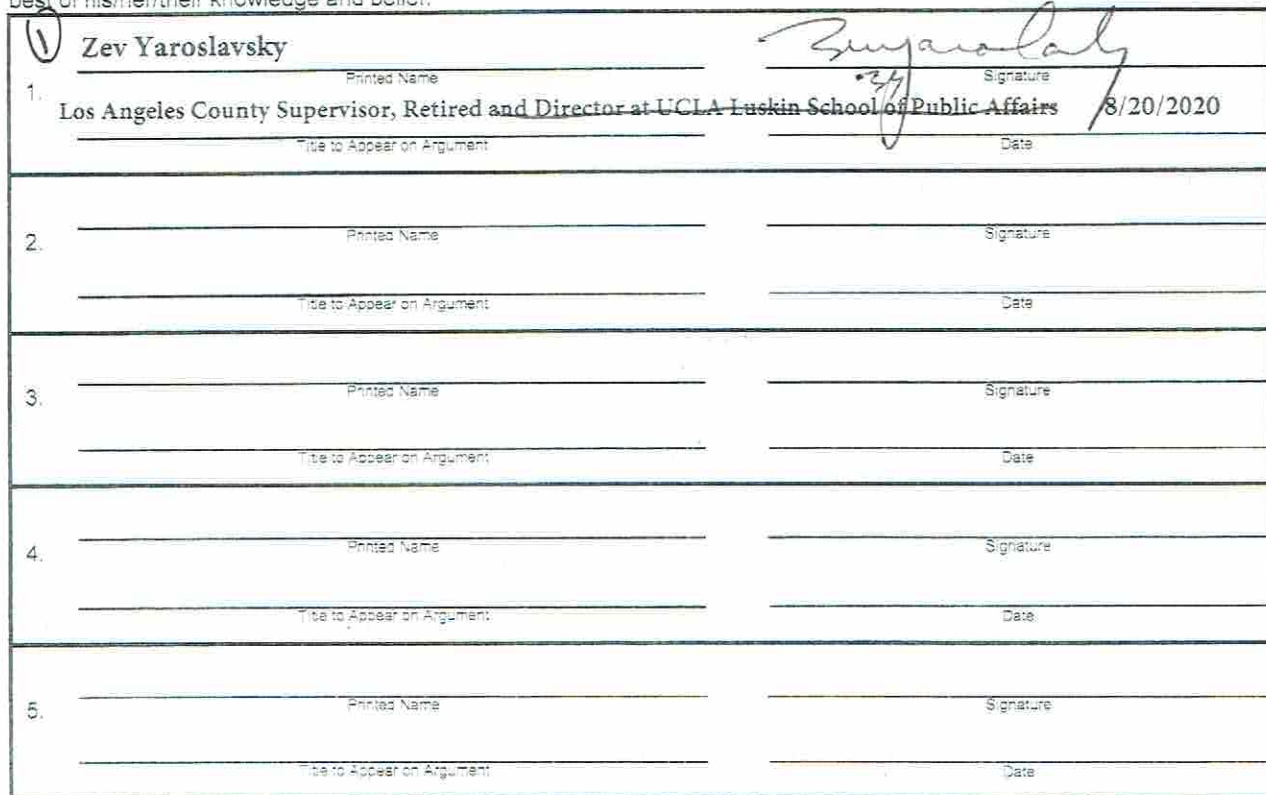 best of his/her/their knowledge and belief.
① Zev Yaroslavsky
Printed Name Signature
1.
Los Angeles County Supervisor, Retired and Director at UCLA Luskin School of Public Affairs 8/20/2020
Title to Appear on Argument Date
2.
Printed Name Signature
Title to Appear on Argument Date
3.
Printed Name Signature
Title to Appear on Argument Date
4.
Printed Name Signature
Title to Appear on Argument Date
5.
Printed Name Signature
Title to Appear on Argument Date